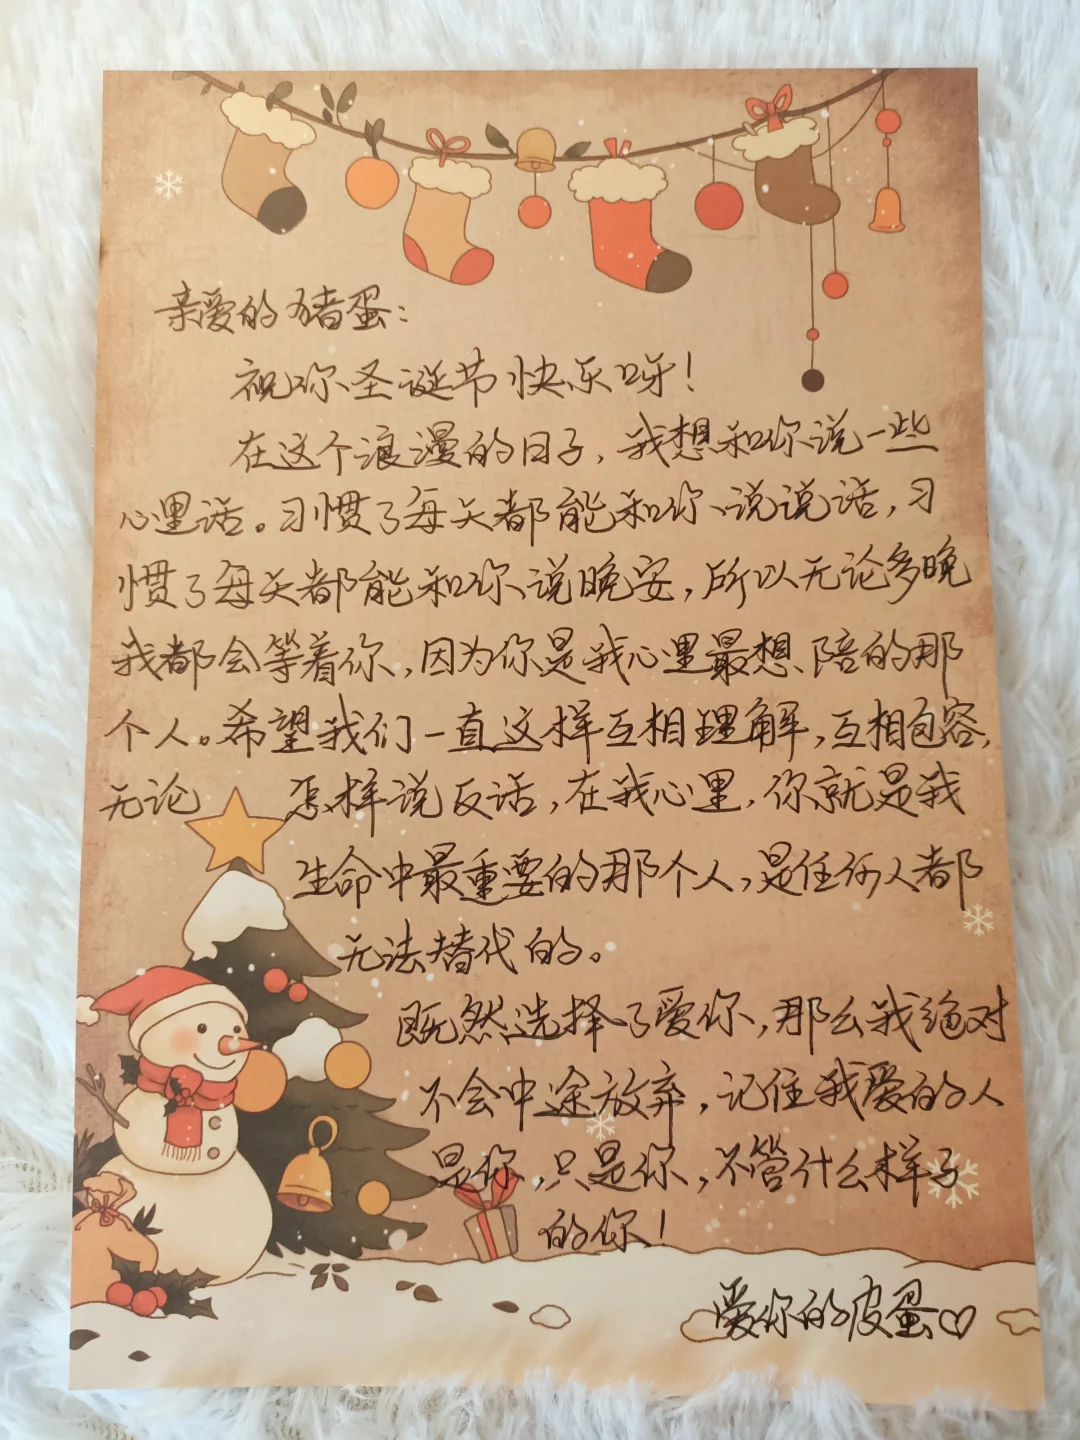 亲爱的猪蛋：
祝你圣诞节快乐呀！
在这个浪漫的日子，我想和你说一些
心里话。习惯了每天都能和你说说话，习
惯了每天都能和你说晚安，所以无论多晚
我都会等着你，因为你是我心里最想陪的那
个人。希望我们一直这样互相理解，互相包容，
无论 怎样说反话，在我心里，你就是我
生命中最重要的那个人，是任何人都
无法替代的。
既然选择了爱你，那么我绝对
不会中途放弃，记住我爱的人
是你，只是你，不管什么样子
的你！
爱你的皮蛋♡